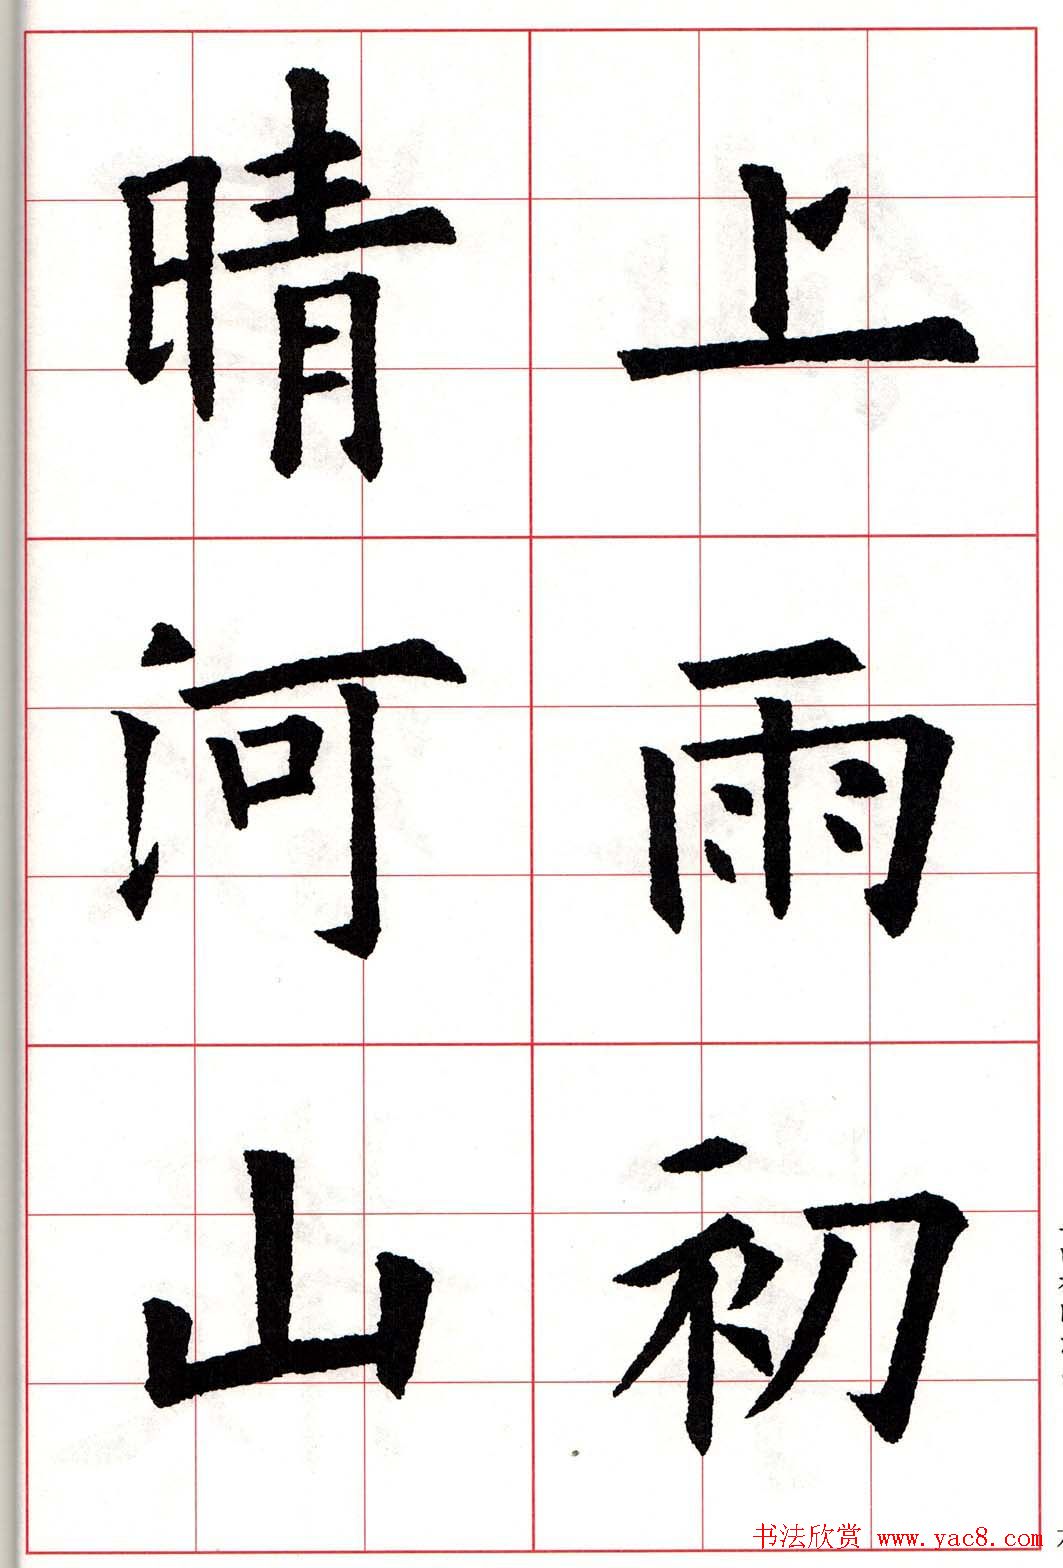 上雨初
晴河山
书法欣赏 www.yac8.com